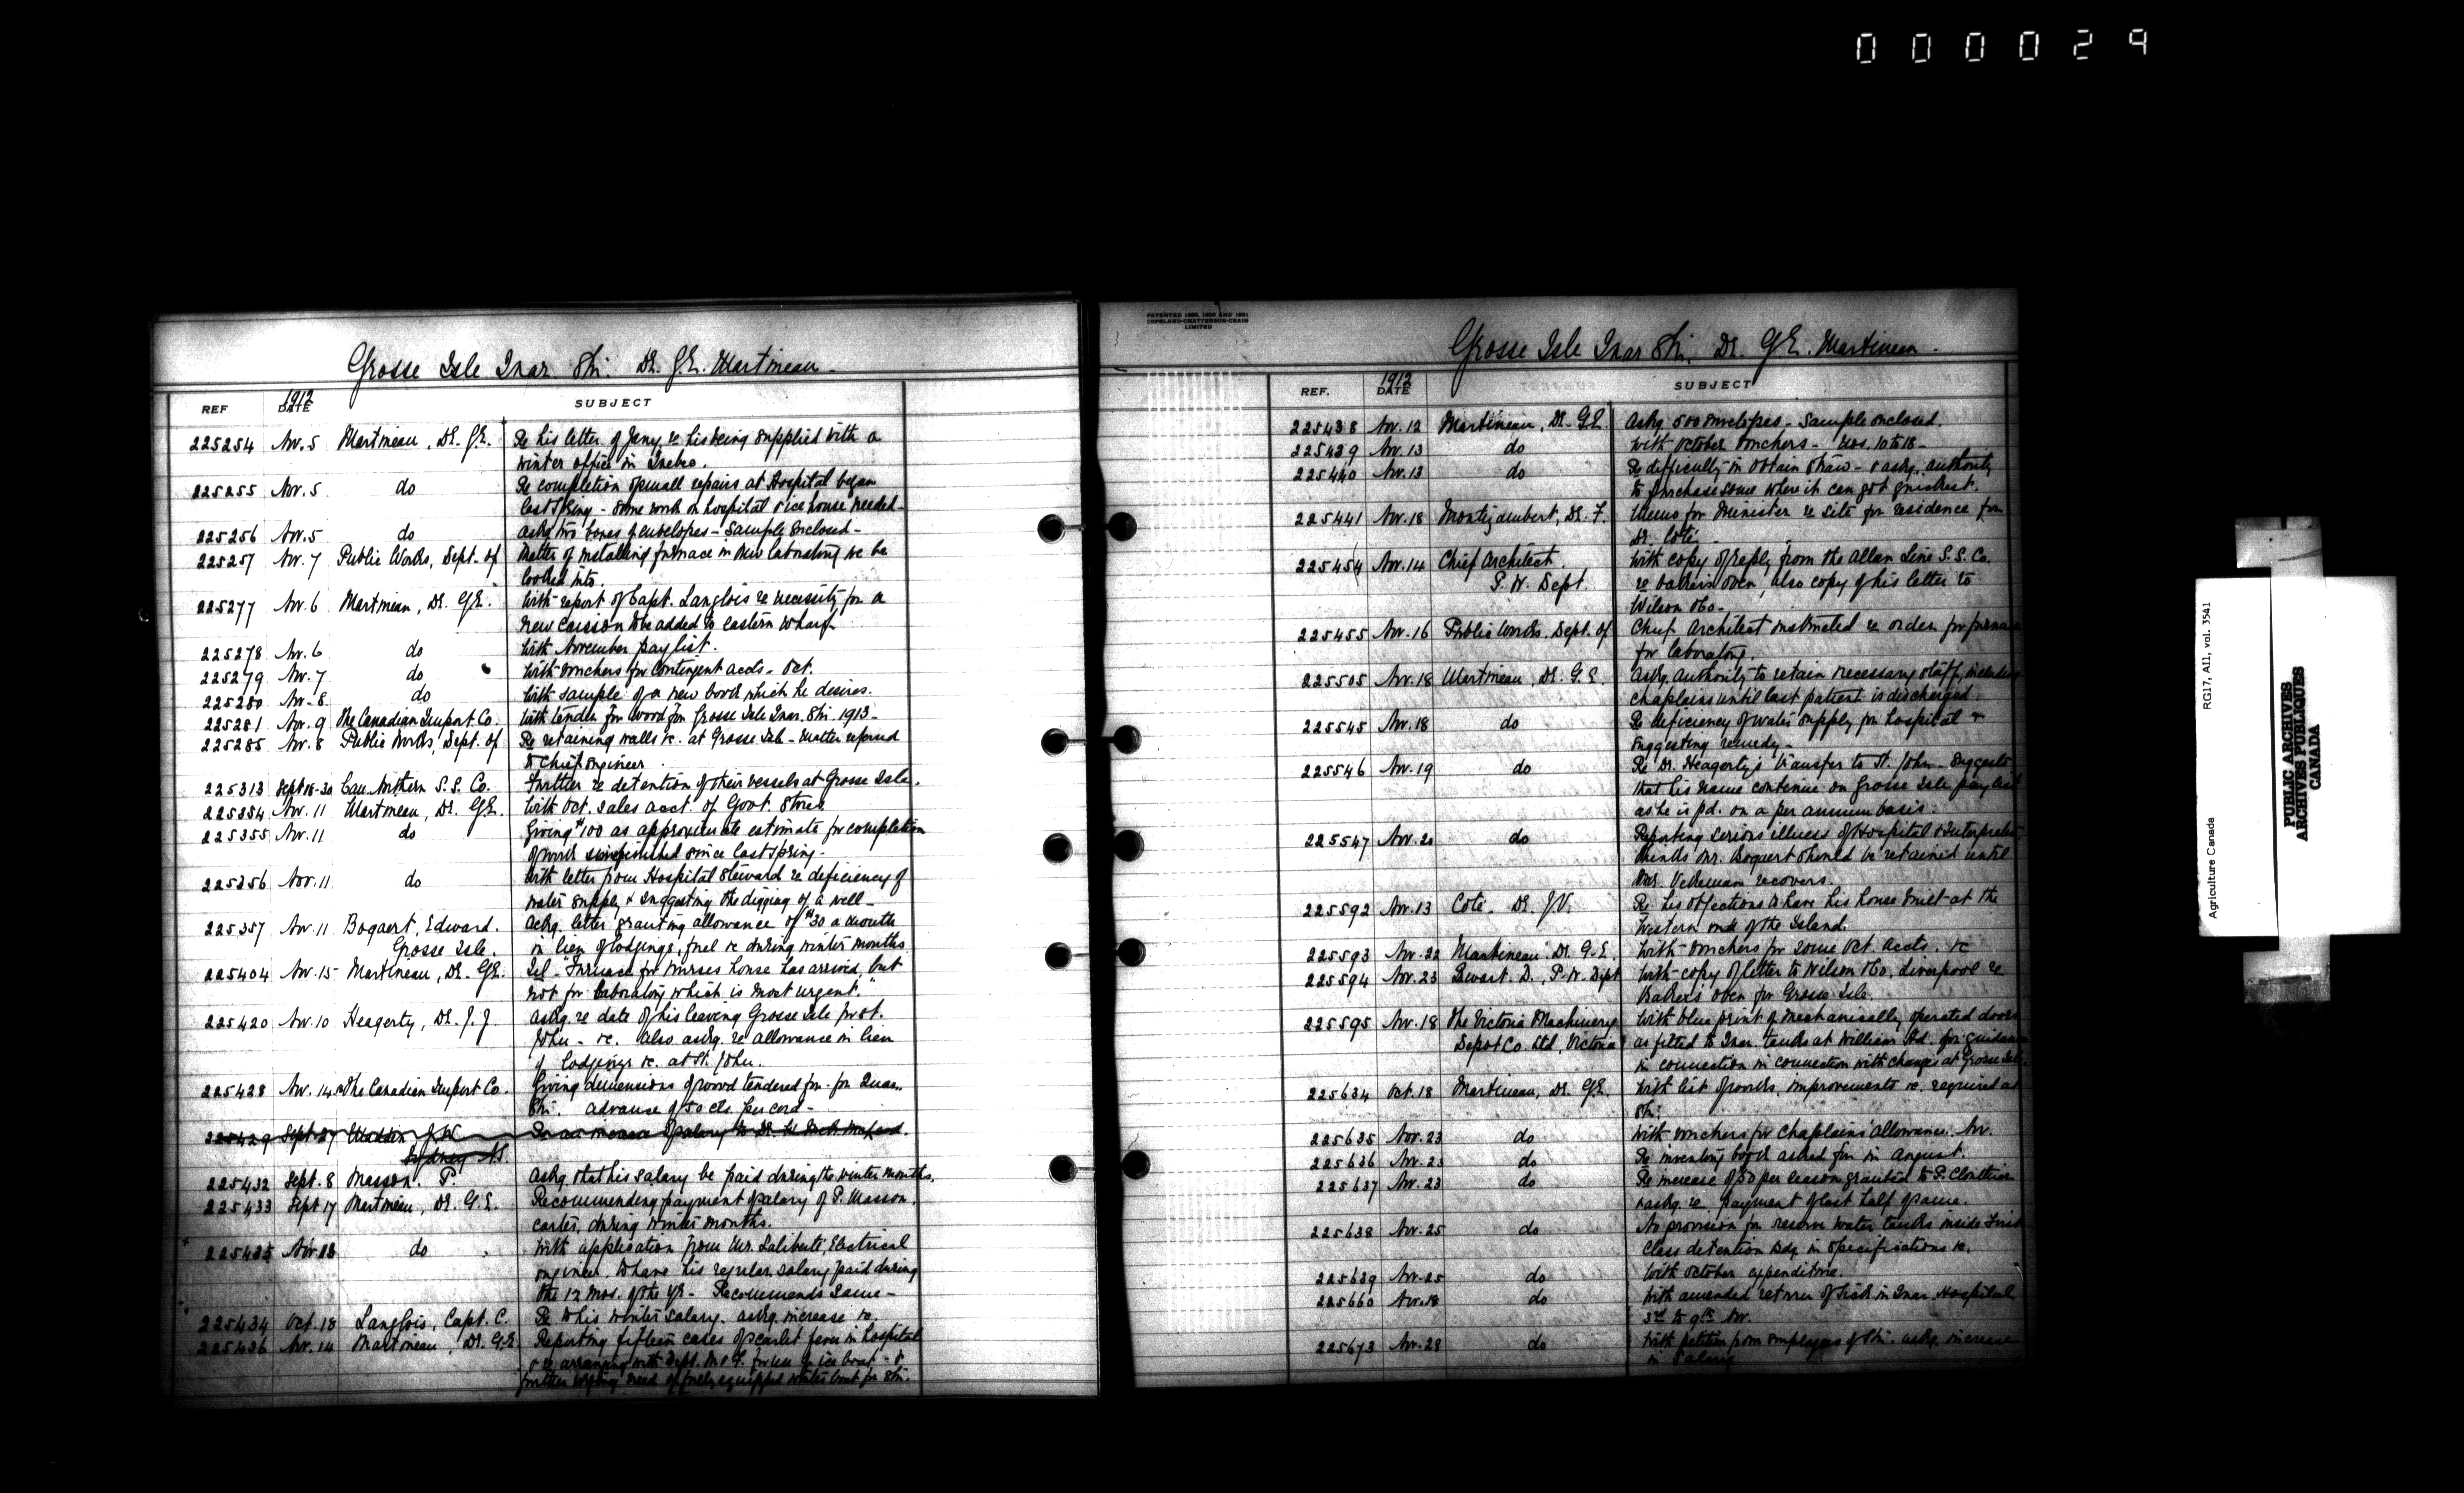 000029
Grosse Isle Quar Stn. Dr. G.E. Martineau
REF 1912 DATE SUBJECT
225254 Nov. 5 Martineau, Dr. G.E. Re his letter of Jany. re his being supplied with a
winter office in Quebec.
225255 Nov. 5 do Re completion of small repairs at Hospital began
last Spring - Some work on hospital & ice house needed -
225256 Nov. 5 do Askg. two boxes of envelopes - Sample enclosed -
225257 Nov. 7 Public Works, Dept. of Matter of installing furnace in new laboratory to be
looked into.
225277 Nov. 6 Martineau, Dr. G.E. With report of Capt. Langlois re necessity for a
new Caisson to be added to Eastern Wharf.
225278 Nov. 6 do With November pay list.
225279 Nov. 7 do With vouchers for contingent accts. Oct.
225280 Nov. 8 do With sample of a new book which he desires.
225281 Nov. 9 The Canadian Import Co. With tender for wood for Grosse Isle Quar. Stn. 1913 -
225285 Nov. 8 Public Works, Dept. of Re retaining walls &c. at Grosse Isle - Matter referred
to Chief Engineer
225313 Sept 16-30 Can. Northern S.S. Co. Further re detention of their vessels at Grosse Isle.
225354 Nov. 11 Martineau, Dr. G.E. With Oct. sales acct. of Govt. Stores
225355 Nov. 11 do Giving $100 as approximate estimate for completion
of work unfinished since last spring -
225356 Nov. 11 do With letter from Hospital Steward re deficiency of
water supply & suggesting the digging of a well -
225357 Nov. 11 Bogaert, Edward. Askg. letter granting allowance of $30 a month
Grosse Isle. in lieu of lodgings, fuel &c during winter months
225404 Nov. 15 Martineau, Dr. G.E. Tel - "Furnace for nurses house has arrived, but
not for laboratory which is most urgent."
225420 Nov. 10 Heagerty, Dr. J.J. Askg. re date of his leaving Grosse Isle for St.
John - &c. Also askg. re allowance in lieu
of lodgings &c. at St. John.
225428 Nov. 14 The Canadian Import Co. Giving dimensions of wood tendered for - for Quar.
Stn. advance of 50 cts. per cord -
225429 Sept 27 Madden J.W. Re an increase of salary to Dr.
Sydney N.S.
225432 Sept. 8 Masson. P. Askg. that his salary be paid during the winter months.
225433 Sept 17 Martineau, Dr. G.E. Recommending payment of salary of P. Masson,
carter, during winter months.
225435 Nov. 12 do With application from Mr. Laliberté, Electrical
engineer, to have his regular salary paid during
the 12 mos. of the yr - Recommends same -
225434 Oct. 18 Langlois, Capt. C. Re to his winter salary. askg. increase &c.
225436 Nov. 14 Martineau, Dr. G.E. Reporting fifteen cases of scarlet fever in hospital
& re arranging with Dept. M & F. for use of ice boat - &
further urging need of fully equipped winter boat for Stn.
PATENTED 1895, 1900 AND 1901
COPELAND-CHATTERSON-CRAIN
LIMITED
Grosse Isle Quar Stn. Dr. G.E. Martineau -
REF. 1912 DATE SUBJECT
225438 Nov. 12 Martineau, Dr. G.E. Askg. 500 envelopes - Sample enclosed.
225439 Nov. 13 do With October vouchers - Nos. 10 to 18 -
225440 Nov. 13 do Re difficulty in obtain straw - & askg. authority
to purchase some where it can got quickest.
225441 Nov. 18 Montizambert, Dr. F. Memo for Minister re site for residence for
Dr. Coté -
225454 Nov. 14 Chief Architect. With copy of reply from the Allan Line S.S. Co.
P.W. Dept. re bakers oven, also copy of his letter to
Wilson & Co -
225455 Nov. 16 Public Works, Dept. of Chief Architect instructed re order for furnace
for laboratory.
225505 Nov. 18 Martineau, Dr. G.E. Askg. authority to retain necessary staff, including
chaplains until last patient is discharged.
225545 Nov. 18 do Re deficiency of water supply for hospital &
suggesting remedy -
225546 Nov. 19 do Re Dr. Heagerty's transfer to St. John - Suggests
that his name continue on Grosse Isle pay list
as he is pd. on a per annum basis.
225547 Nov. 20 do Reporting serious illness of Hospital & Interpreter
thinks Mr. Bogaert should be retained until
Mr. Vekeman recovers.
225592 Nov. 13 Coté - Dr. J.V. Re his objections to have his house built at the
Western end of the Island.
225593 Nov. 22 Martineau, Dr. G.E. With vouchers for some Oct. accts. &c
225594 Nov. 23 Ewart. D., P.W. Dept With copy of letter to Wilson & Co. Liverpool re
Baker's oven for Grosse Isle.
225595 Nov. 18 The Victoria Machinery With blue print of mechanically operated doors
Depot Co. Ltd, Victoria as fitted to Quar. tanks at William Hd. for guidance
in connection in connection with changes at Grosse Isle.
225634 Oct. 18 Martineau, Dr. G.E. With list of works, improvements &c. required at
Stn.
225635 Nov. 23 do With vouchers for Chaplains' allowance. Nov.
225636 Nov. 23 do Re inventory book asked for in August.
225637 Nov. 23 do Re increase of 50 per season granted to P. Cloutier
& askg. re payment of last half of same.
225638 Nov. 25 do No provision for reserve water tanks inside First
Class detention Bdg. in specifications &c.
225639 Nov. 25 do With October expenditure.
225660 Nov. 18 do With amended return of Sick in Quar. Hospital
3rd to 9th Nov.
225673 Nov. 28 do With petition from employees of Stn. askg. increase
in salary
RG17, A11, vol. 3541
Agriculture Canada
PUBLIC ARCHIVES
ARCHIVES PUBLIQUES
CANADA